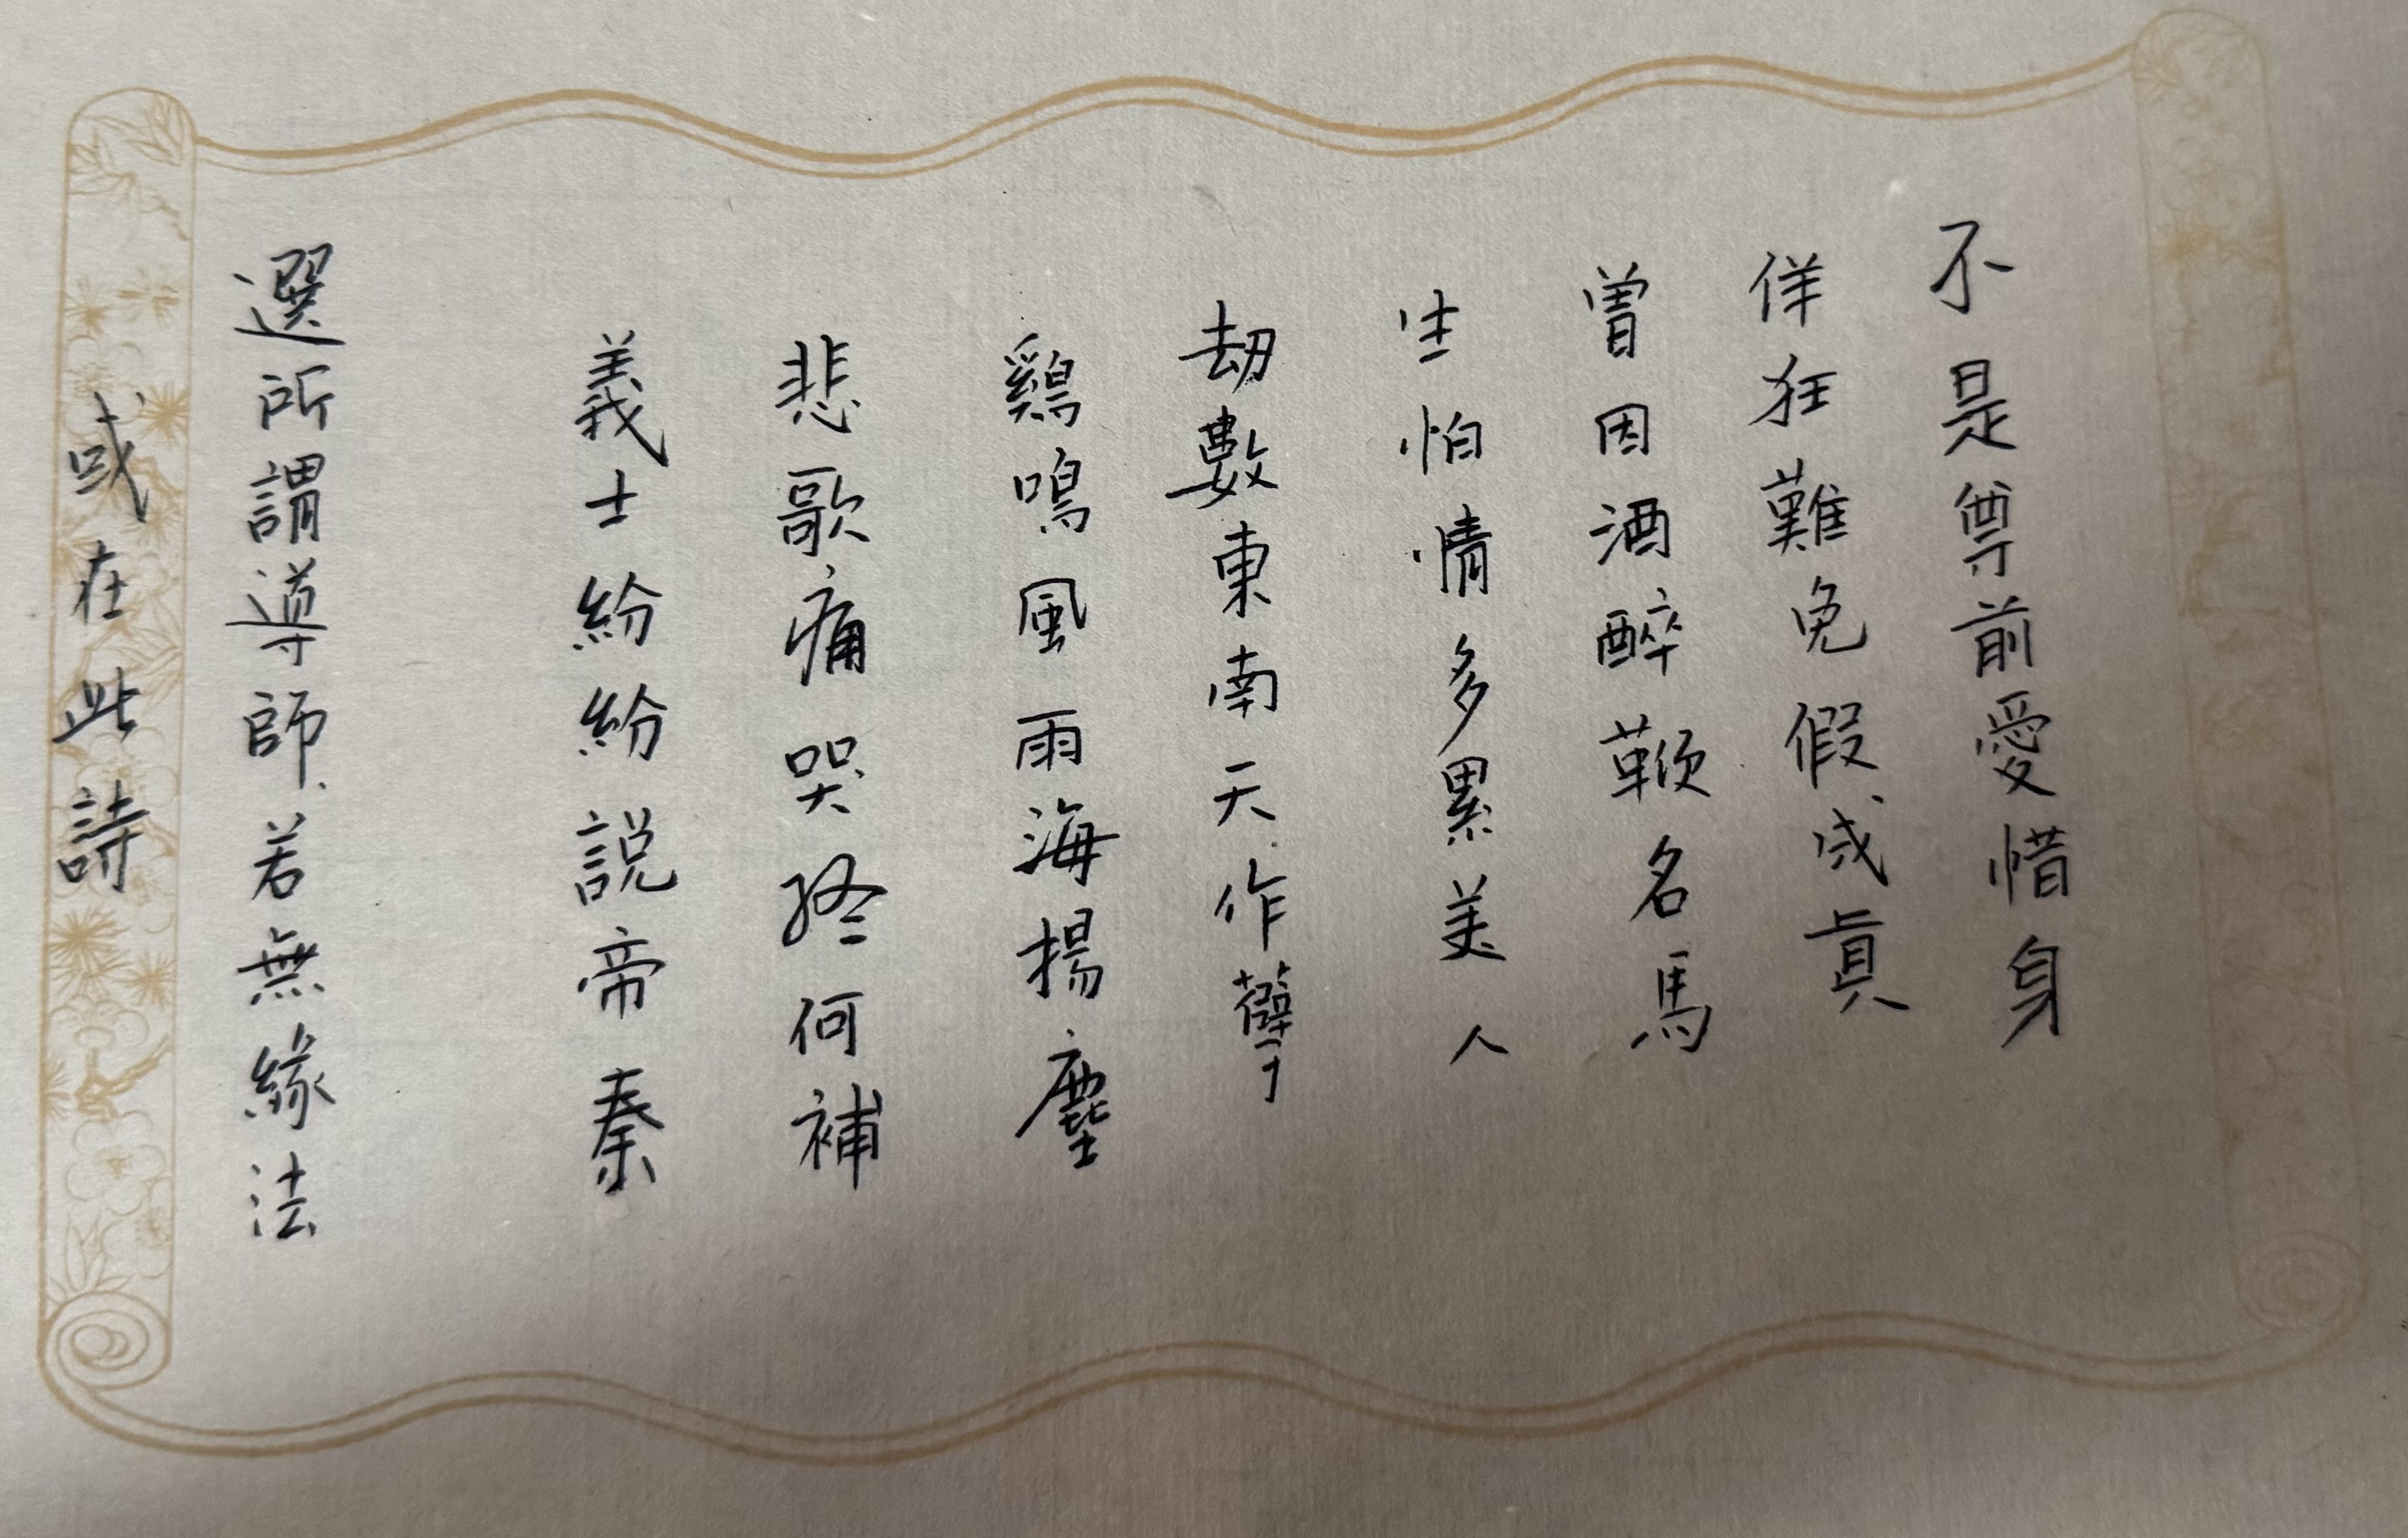 不是尊前愛惜身
佯狂難免假成眞
曾因酒醉鞭名馬
生怕情多累美人
劫數東南天作孽
鷄鳴風雨海揚塵
悲歌痛哭終何補
義士紛紛説帝秦
選所謂導師若無緣法
或在此詩